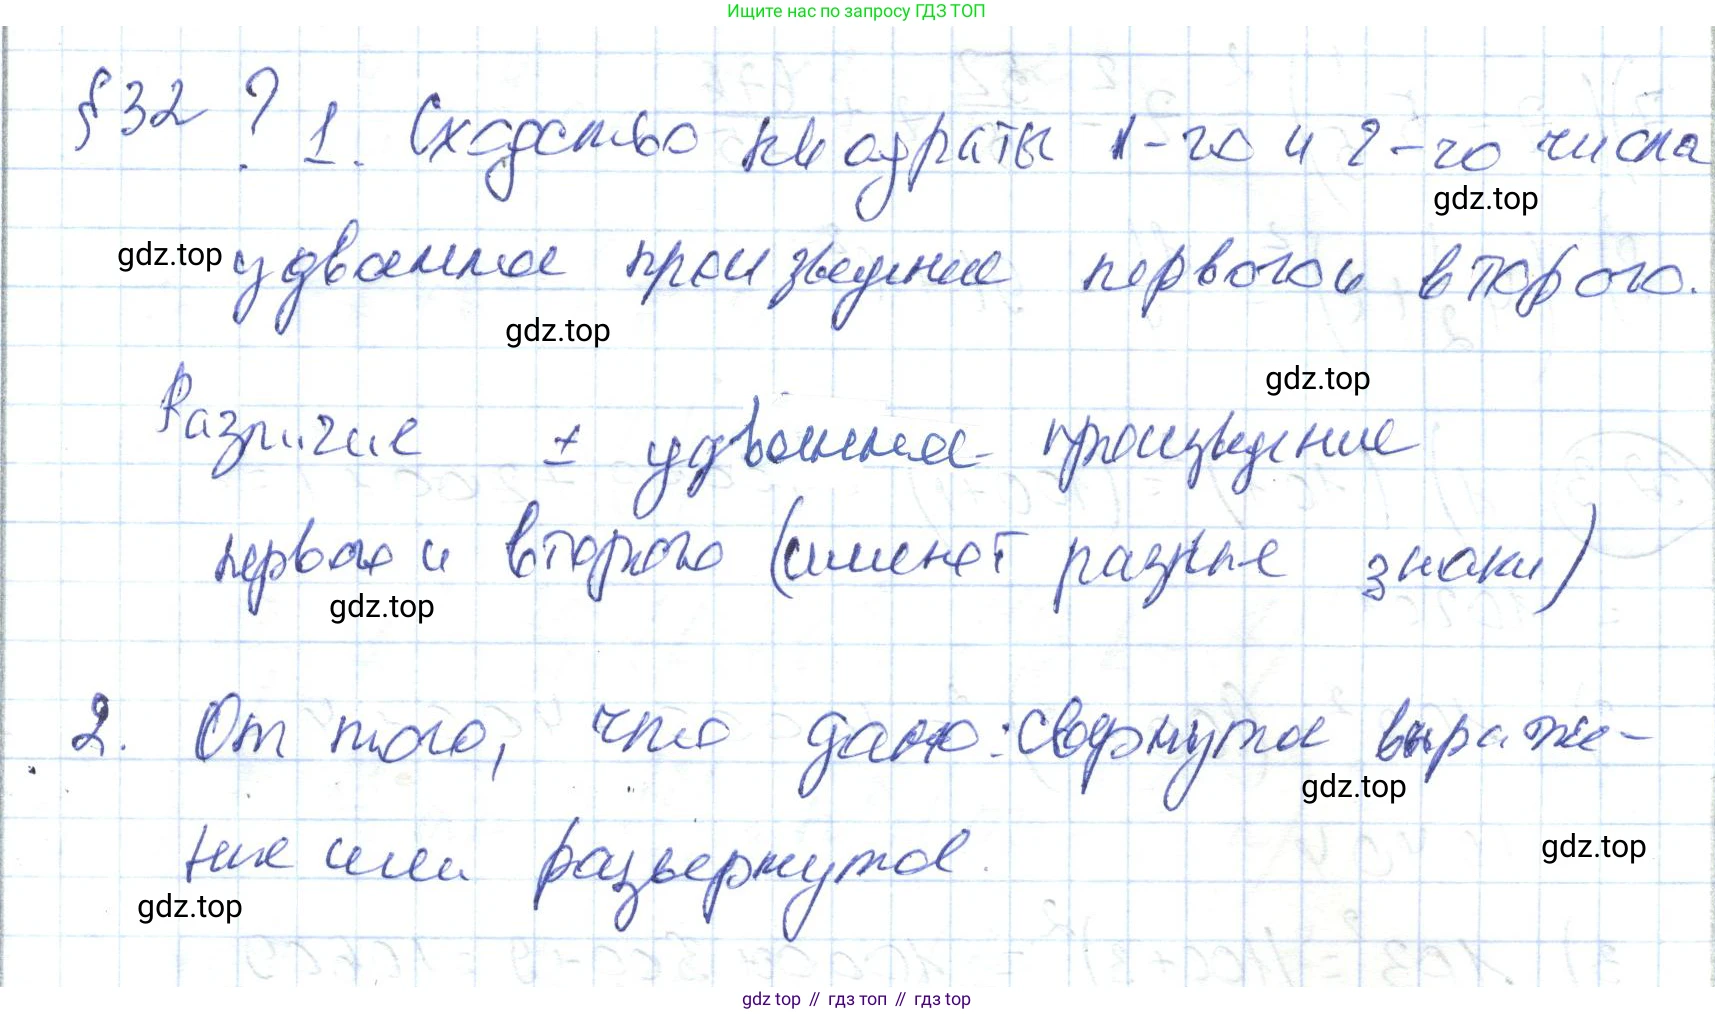 Ищите нас по запросу ГДЗ ТОП
§ 32 ? 1. Сходство квадраты 1-го и 2-го числа
gdz.top
gdz.top удвоенное произведение первого и второго.
gdz.top
gdz.top
Различие ± удвоенное произведение
первого и второго (имеют разные знаки)
gdz.top
2. От того, что дано: свернутое выраже-
gdz.top
ние или развернутое.
gdz.top
gdz.top
gdz top // гдз топ // gdz top